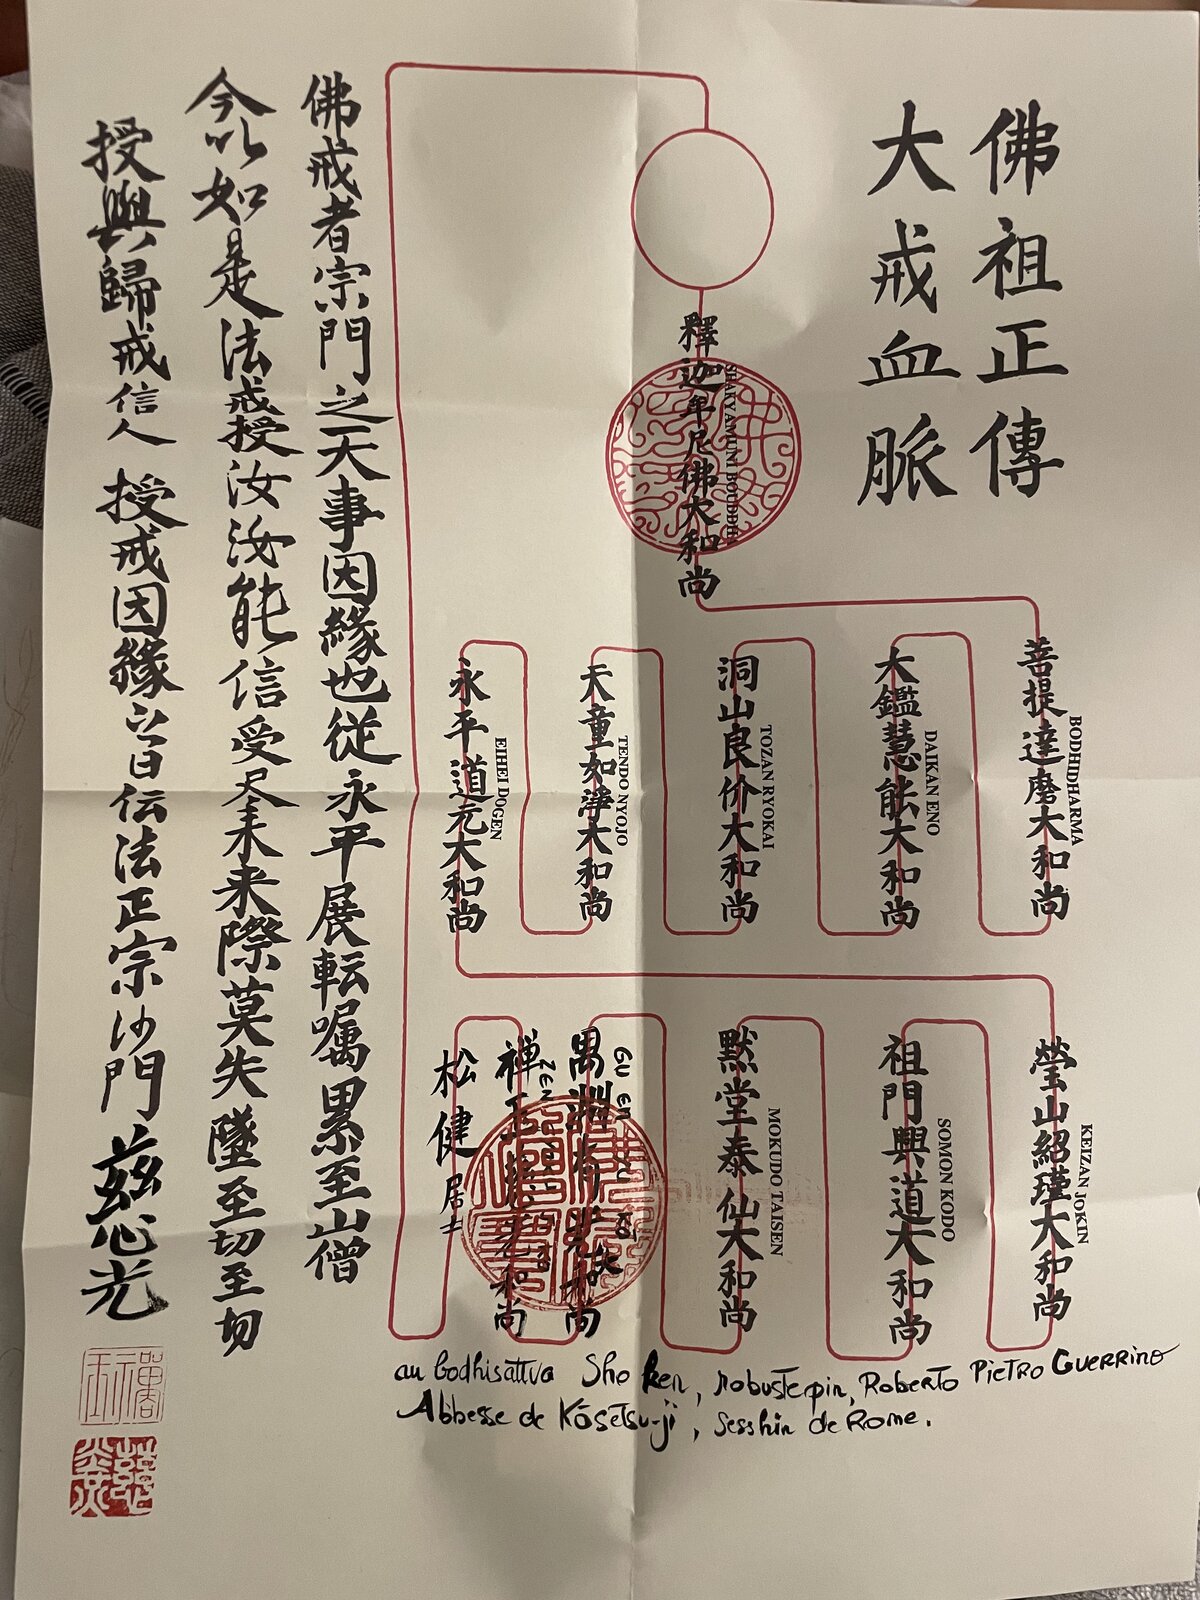 佛祖正傳
大戒血脈
釋迦牟尼佛大和尚
SHAKYAMUNI BOUDDHA
菩提達磨大和尚
BODHIDHARMA
大鑑慧能大和尚
DAIKAN ENO
洞山良价大和尚
TOZAN RYOKAI
天童如淨大和尚
TENDO NYOJO
永平道元大和尚
EIHEI DOGEN
瑩山紹瑾大和尚
KEIZAN JOKIN
祖門興道大和尚
SOMON KODO
黙堂泰仙大和尚
MOKUDO TAISEN
和尚
禅
ZEN
和尚
松健居士
佛戒者宗門之大事因緣也従永平展転嘱累至山僧
今以如是法戒授汝汝能信受尽未来際莫失墜至切至切
授與歸戒信人 授戒因緣旨伝法正宗沙門 慈心光
au bodhisattva Sho Ken, robuste pin, Roberto Pietro Guerrino
Abbesse de Kōsetsu-ji, sesshin de Rome.